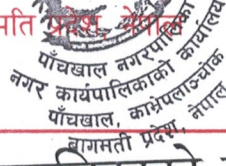 मति प्रदेश, नेपाल
पाँचखाल नगरपालिका
नगर कार्यपालिकाको कार्यालय
पाँचखाल, काभ्रेपलाञ्चोक
बागमती प्रदेश, नेपाल